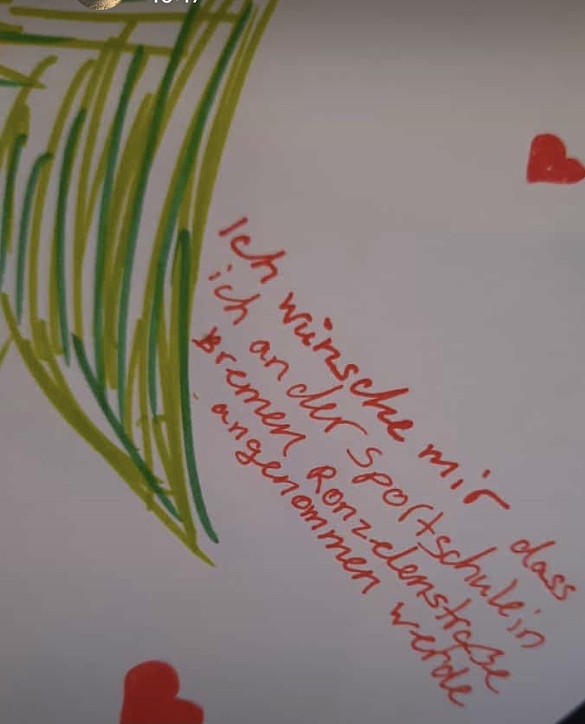 Ich wünsche mir dass
ich an der Sportschule in
Bremen Ronzelenstraße
angenommen werde